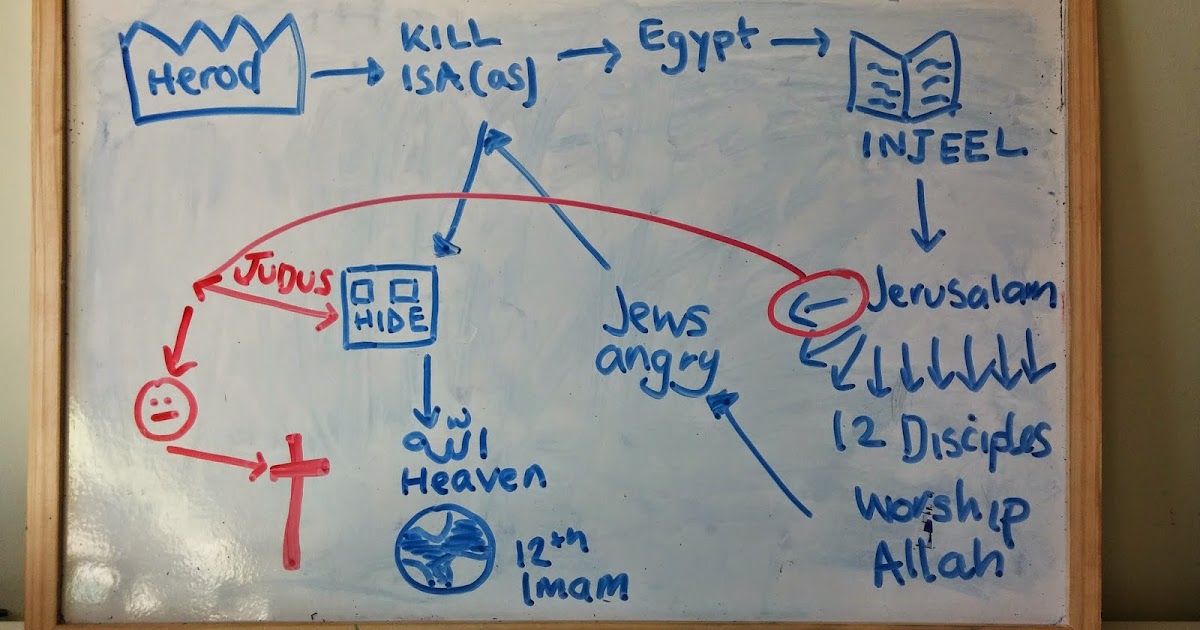 Herod
KILL
ISA(as)
Egypt
INJEEL
JUDUS
HIDE
Jews
angry
Jerusalam
12 Disciples
Worship
Allah
الله
Heaven
12th
Imam